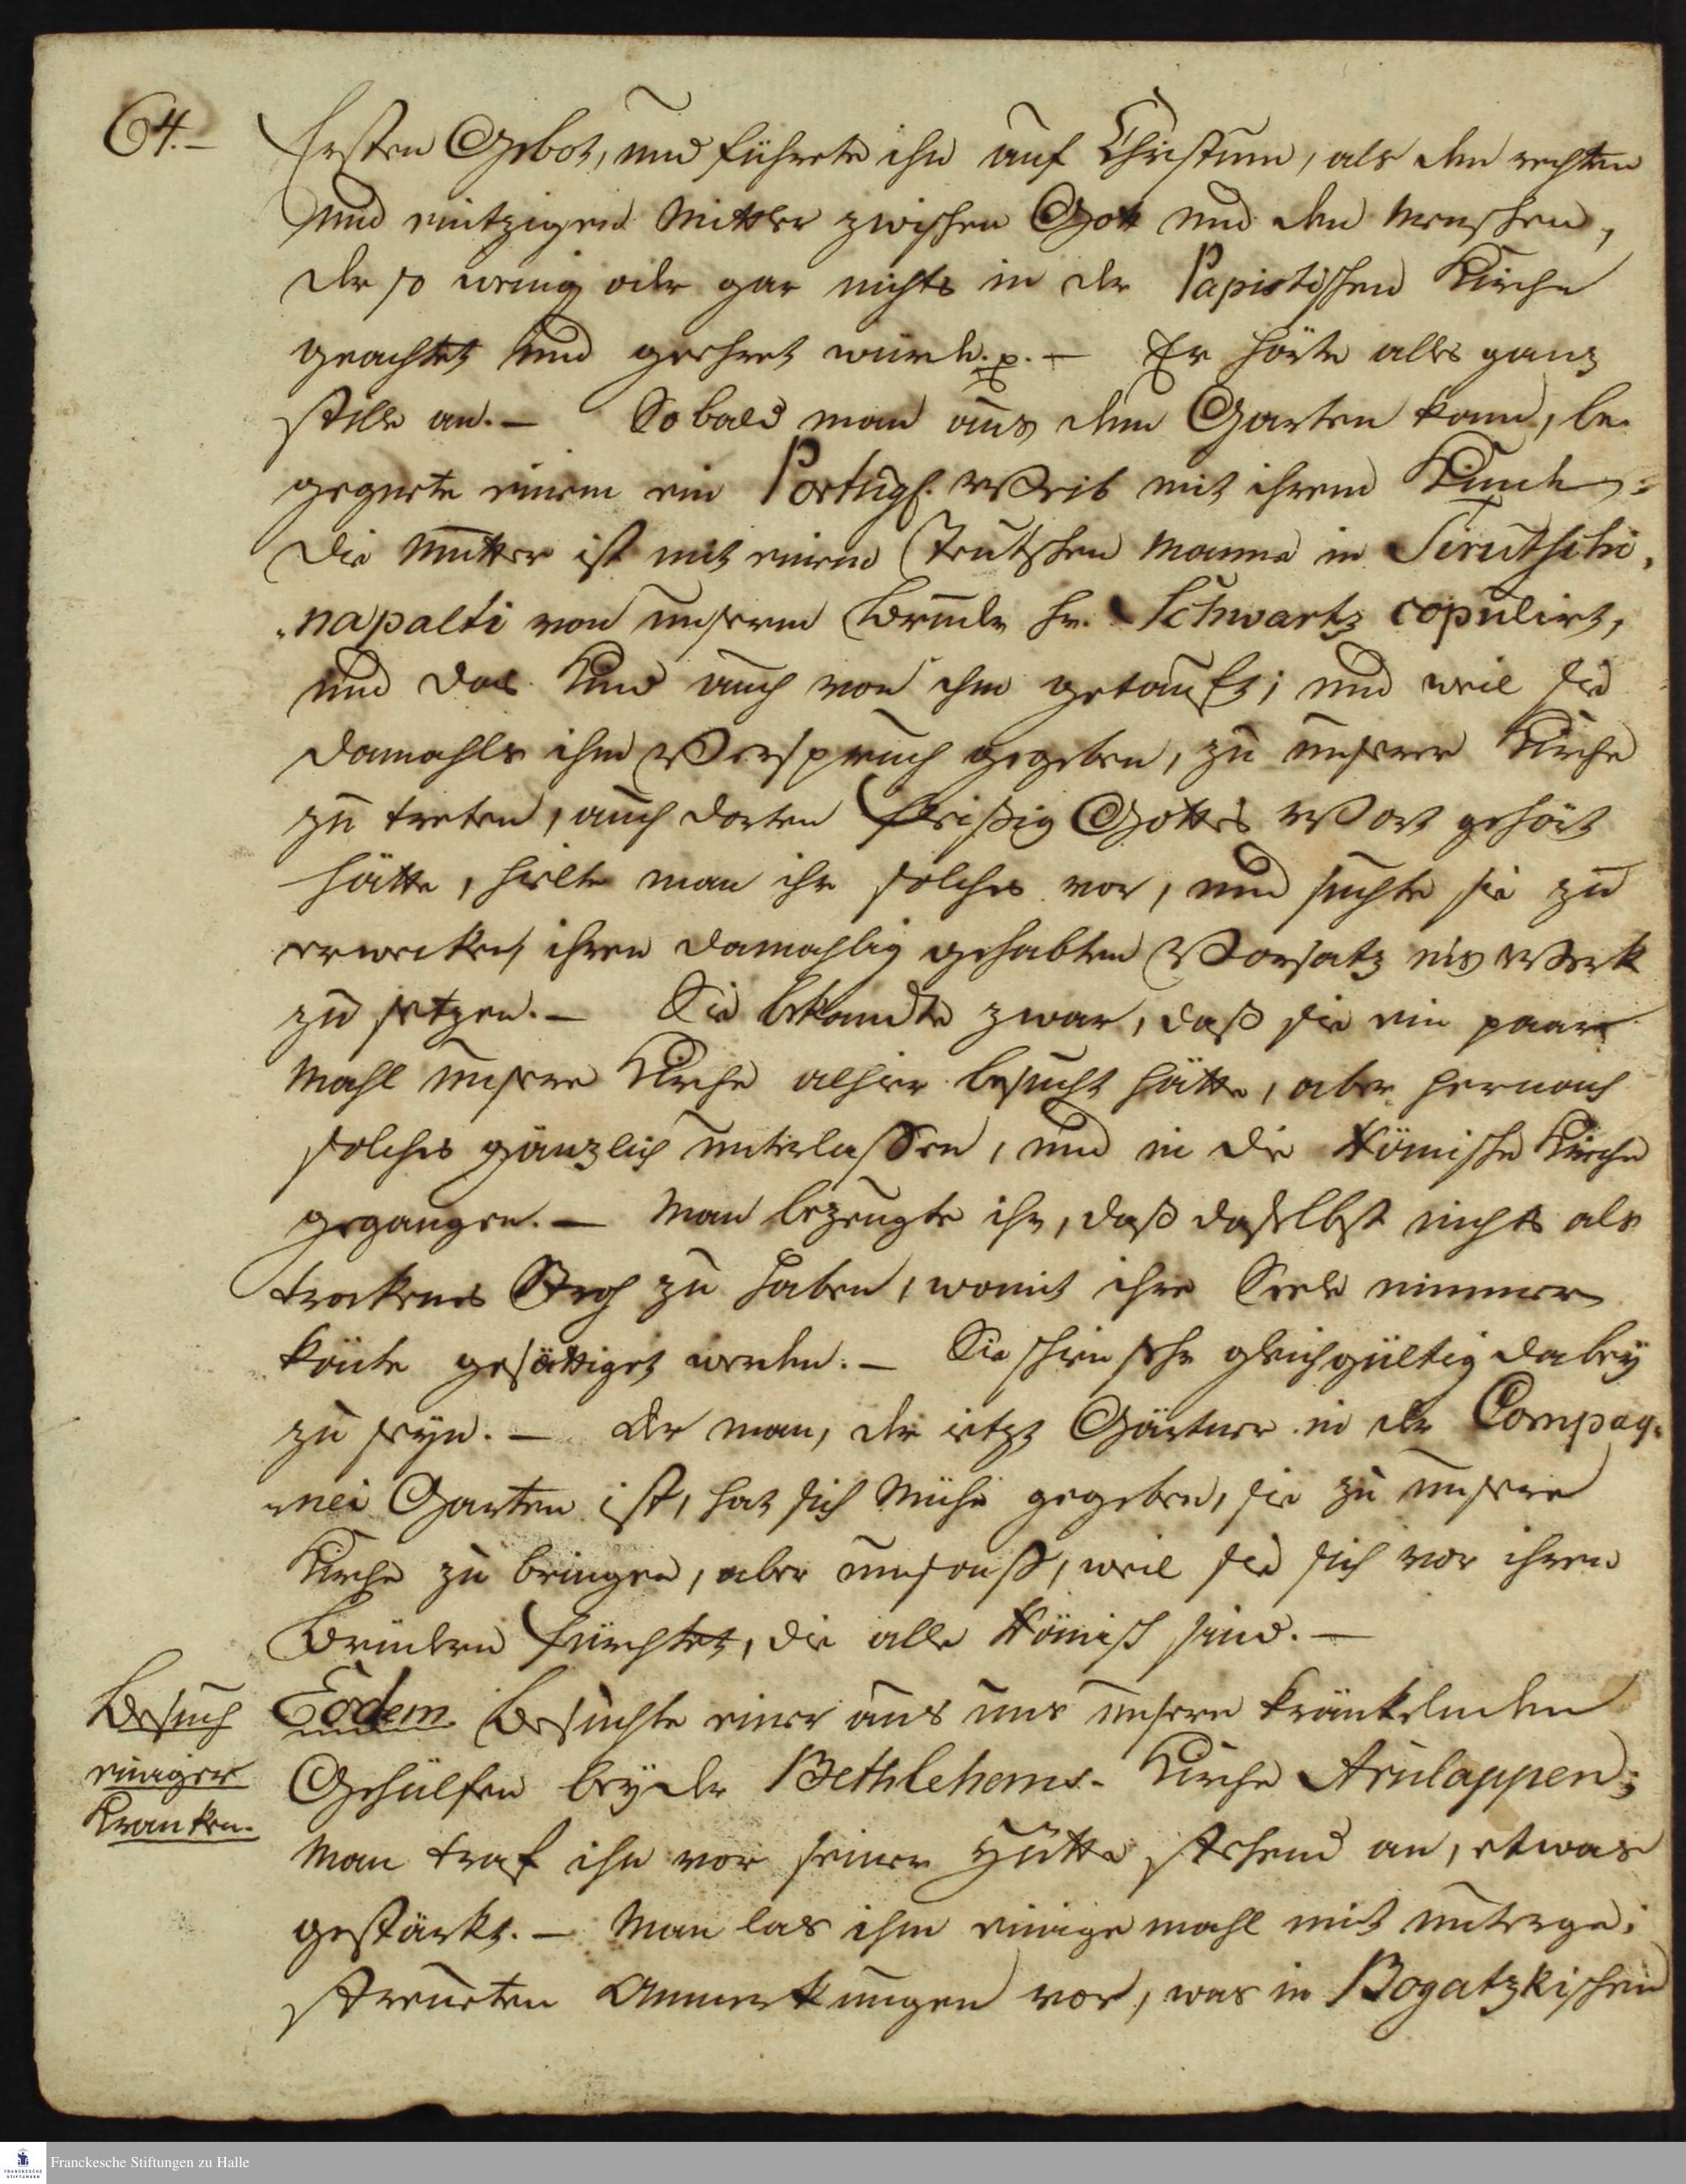 64.-
Ersten Gebot, und führete ihn auf Christum, als den rechten
und eintzigen Mittler zwischen Gott und den Menschen,
der so wenig oder gar nichts in der Papistischen Kirche
geachtet und geehret würde. p. — Er hörte alles ganz
stille an. — So bald man aus dem Garten kam, be-
gegnete einem ein Portugs. Weib mit ihrem Kinde:
Die Mutter ist mit einem Teutschen Manne in Tirutschi-
-napalli von unserm Bruder Hr. Schwartz copulirt,
und das Kind auch von ihm getauft; und weil sie
damahls ihm Verspruch gegeben, zu unserer Kirche
zu treten, auch dorten fleißig Gottes Wort gehört
hätte, hielte man ihr solches vor, und suchte sie zu
erwecken, ihren damahlig gehabten Vorsatz ins Werk
zu setzen. — Sie bekandte zwar, daß sie ein paar
Mahl unsere Kirche alhier besucht hätte, aber hernach
solches gänzlich unterlaßen, und in die Römische Kirche
gegangen. — Man bezeugte ihr, daß daselbst nichts als
trockenes Stroh zu haben, womit ihre Seele nimmer
könte gesättiget werden. — Sie schien sehr gleichgültig dabey
zu seyn. — Der Man, der ietzt Gärtner in der Compag-
-nei Garten ist, hat sich Mühe gegeben, sie zu unsere
Kirche zu bringen, aber umsonst, weil sie sich vor ihren
Brüdern fürchtet, die alle Römisch sind. —
Besuch
einiger
Kranken.
Eodem besuchte einer aus uns unsern kränkelnden
Gehülfen bey der Bethlehems- Kirche Arulappen;
Man traf ihn vor seiner Hütte stehend an, etwas
gestärkt. — Man las ihm einige mahl mit unterge-
streueten Anmerkungen vor, was in Bogatzkischen
Franckesche Stiftungen zu Halle